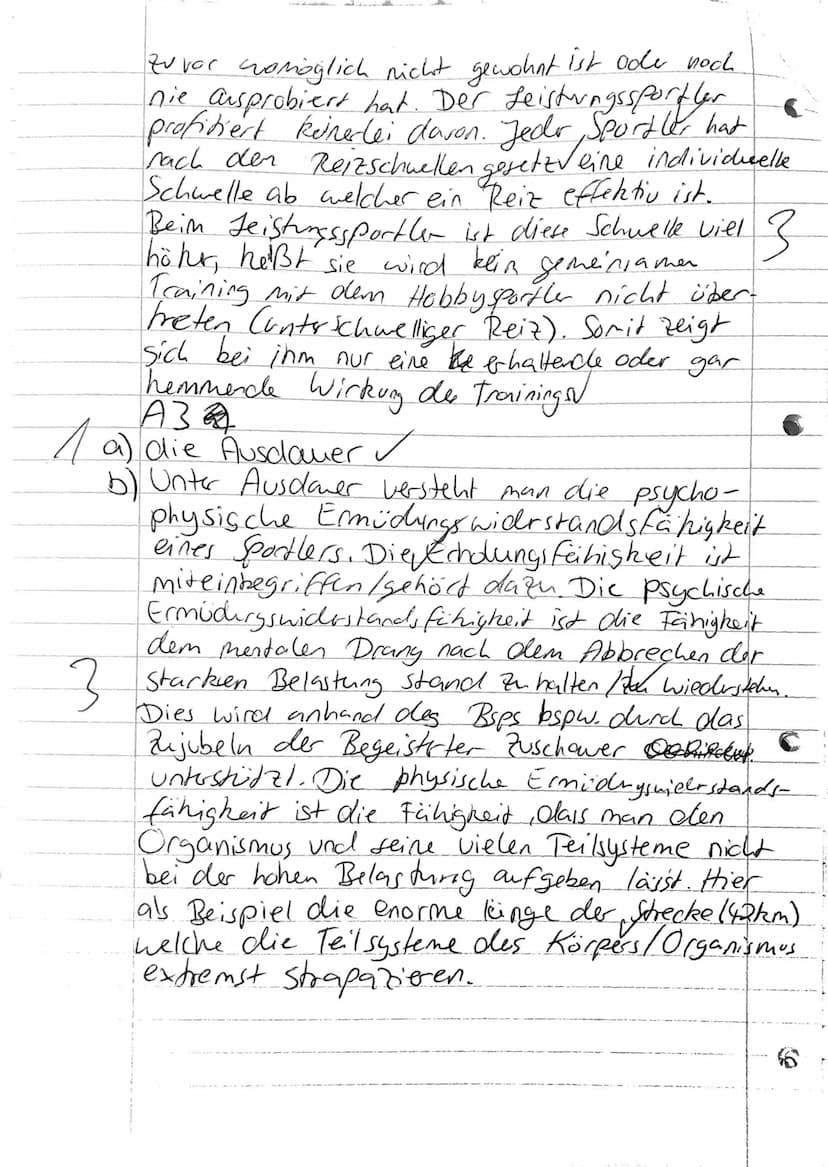 zuvor womöglich nicht gewohnt ist oder noch
nie ausprobiert hat. Der Leistungssportler
profitiert keinerlei davon. Jeder Sportler hat
nach den Reizschwellengesetz eine individuelle
Schwelle ab welcher ein Reiz effektiv ist.
Beim Leistungssportler ist diese Schwelle viel
höher, heißt sie wird kein gemeinsamen
Training mit dem Hobbysportler nicht über-
treten (unterschwelliger Reiz). Somit zeigt
sich bei ihm nur eine erhaltende oder gar
hemmende Wirkung des Trainings
3
A3
1 a) die Ausdauer ✓
b) Unter Ausdauer versteht man die psycho-
physische Ermüdungswiderstandsfähigkeit
eines Sportlers. Die Erholungsfähigkeit ist
miteinbegriffen/gehört dazu. Die psychische
Ermüdungswiderstandsfähigkeit ist die Fähigkeit
dem mentalen Drang nach dem Abbrechen der
starken Belastung stand zu halten / zu wiederstehen.
3
Dies wird anhand des Bsps bspw. durch das
Zujubeln der Begeisterter Zuschauer
unterstützt. Die physische Ermüdungswiderstands-
fähigkeit ist die Fähigkeit, dass man den
Organismus und seine vielen Teilsysteme nicht
bei der hohen Belastung aufgeben lässt. Hier
als Beispiel die enorme länge der Strecke (42km)
welche die Teilsysteme des Körpers/Organismus
extremst strapazieren.